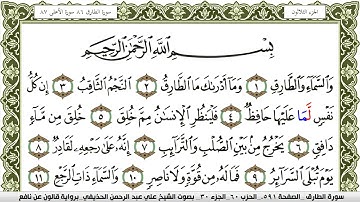 الجزء الثلاثون سورة الطارق ٨٦ سورة الأعلى ٨٧
بِسْمِ اللَّهِ الرَّحْمَٰنِ الرَّحِيمِ
وَالسَّمَاءِ وَالطَّارِقِ ١ وَمَا أَدْرَىٰكَ مَا الطَّارِقُ ٢ النَّجْمُ الثَّاقِبُ ٣ إِن كُلُّ
نَفْسٍ لَّمَا عَلَيْهَا حَافِظٌ ٤ فَلْيَنظُرِ الْإِنسَٰنُ مِمَّ خُلِقَ ٥ خُلِقَ مِن مَّاءٍ
دَافِقٍ ٦ يَخْرُجُ مِن بَيْنِ الصُّلْبِ وَالتَّرَائِبِ ٧ إِنَّهُ عَلَىٰ رَجْعِهِ لَقَادِرٌ ٨
يَوْمَ تُبْلَى السَّرَائِرُ ٩ فَمَا لَهُ مِن قُوَّةٍ وَلَا نَاصِرٍ ١٠ وَالسَّمَاءِ ذَاتِ الرَّجْعِ ١١
سورة الطارق الصفحة ٥٩١ الحزب ٦٠ الجزء ٣٠ بصوت الشيخ علي عبد الرحمن الحذيفي برواية قالون عن نافع